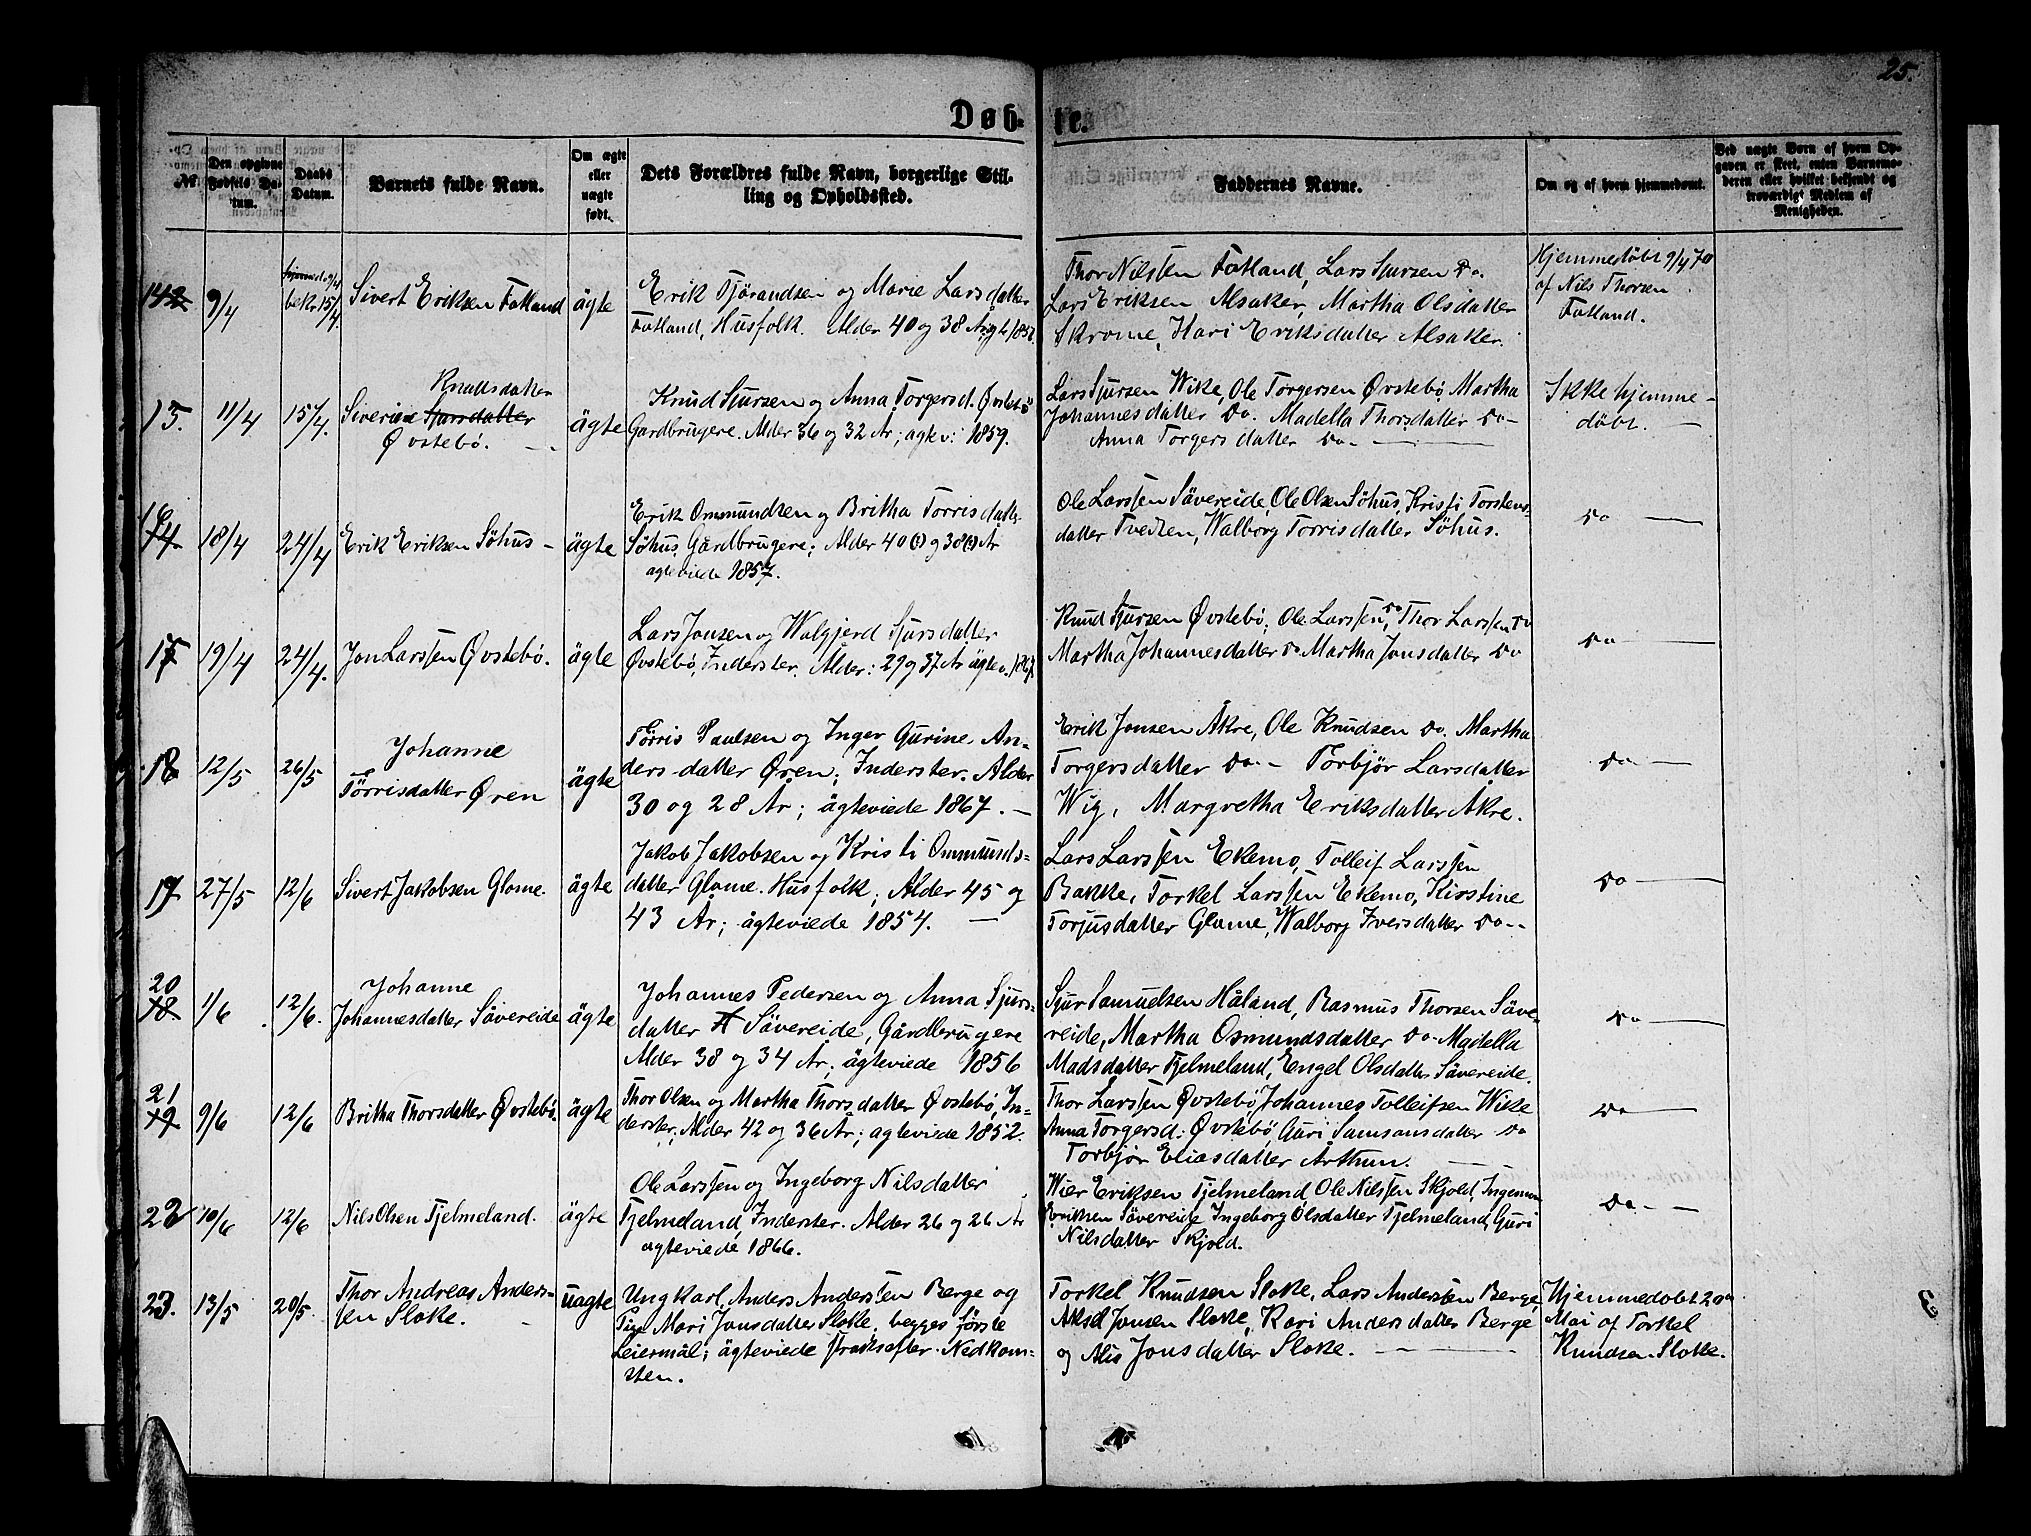 25.
Døb-
te.
№
Den opgivne Fødsels Datum.
Daabs Datum.
Barnets fulde Navn.
Om ægte eller uægte født.
Dets Forældres fulde Navn, borgerlige Stilling og Opholdssted.
Faddernes Navne.
Om og af hvem hjemmedøbt.
Ved uægte Børn af hvem Opgaven er skeet, enten Barnemoderen eller hvilket bekjendt og troværdigt Medlem af Menigheden.
14 9/4 hjemmed. 9/4 bek. 15/4. Sivert Eriksen Fatland ägte
Erik Tjörandsen og Marie Larsdatter
Fatland, Husfolk. Alder 40 og 38 År
Thor Nilssen Fatland, Lars Sjursen Do.
Lars Eriksen Alsaker, Martha Olsdatter
Skrome, Kari Eriksdatter Alsaker.
Hjemmedöbt 9/4 70
af Nils Thorsen
Fatland.
15. 11/4 15/4. Knudsdatter
Siverine Larsdatter
Øvstebö. ägte
Knud Sjursen og Anna Torgersd. Øvstebö
Gardbrugere. Alder 36 og 32 Ar; agtev: 1859.
Lars Sjursen Wike, Ole Torgersen Øvstebö, Martha
Johannesdatter Do. Madella Thorsdatter Do-
Anna Torgersdatter Do-
Ikke hjemme-
döbt.
16 14. 18/4 24/4 Erik Eriksen Söhus - ägte
Erik Ommundsen og Britha Torrisdatter
Söhus, Gårdbrugere; Alder 40 (?) og 38 (?) Ar
agteviede 1857.
Ole Larssen Sävereide, Ole Olsen Söhus, Kristi Torstens-
datter Tvedten, Walborg Torrisdatter Söhus.
Do
17 19/4 24/4. Jon Larssen Øvstebö. ägte
Lars Jonsen og Walgjerd Sjursdatter
Øvstebö, Inderster. Alder: 29 og 37 Ar ägtev. 1867.
Knud Sjursen Øvstebö, Ole Larssen Do, Thor Larssen Do
Martha Johannesdatter Do Martha Jonsdatter Do
Do
18 12/5 26/5 Johanne
Törrisdatter Øren ägte
Törris Paulsen og Inger Gurine An-
ders-datter Øren; Inderster. Alder
30 og 28 Ar; ägteviede 1867. -
Erik Jonsen Åkre, Ole Knudsen Do. Martha
Torgersdatter Do- Torbjör Larsdatter
Wig, Margretha Eriksdatter Åkre.
Do
19 27/5 12/6 Sivert Jakobsen Glome. ägte
Jakob Jakobsen og Kristi Ommunds-
datter Glome. Husfolk; Alder 45 og
43 Ar; ägteviede 1854. -
Lars Larssen Ekemo, Tolleif Larssen
Bakke, Torkel Larssen Ekemo, Kirstine
Torjusdatter Glome, Walborg Iversdatter Do--
Do
20 18. 1/6 12/6. Johanne
Johannesdatter Sävereide ägte
Johannes Pedersen og Anna Sjurs-
datter Sävereide, Gårdbrugere
Alder 38 og 34 Ar; ägteviede 1856
Sjur Samuelsen Håland, Rasmus Thorsen Säve-
reide, Martha Osmundsdatter Do- Madella
Madsdatter Tjelmeland, Engel Olsdatter Sävereide.
Do
21 19 9/6 12/6 Britha Thorsdatter Øvstebö. ägte
Thor Olsen og Martha Thorsdatter Øvstebö, In-
derster; Alder 42 og 36 Ar; agteviede 1852.
Thor Larssen Øvstebö, Johannes Tolleifsen Wike
Anna Torgersd: Øvstebö, Guri Samsonsdatter Do
Torbjör Eliasdatter Arthun.
Do
22 10/6 12/6 Nils Olsen Tjelmeland. ägte
Ole Larssen og Ingeborg Nilsdatter
Tjelmeland, Inderster. Alder 26 og 26 Ar
agteviede 1866.
Wier Eriksen Tjelmeland, Ole Nilssen Skjold,
Eriksen Sävereide Ingeborg Olsdatter Tjelmeland, Guri
Nilsdatter Skjold.
Do
23. 13/5 20/5. Thor Andreas Anders-
sen Sloke. uagte
Ungkarl Anders Anderssen Berge og
Pige Mari Jonsdatter Sloke, begges förste
Leiermål; ägteviede straks efter Nedkom-
sten.
Torkel Knudsen Sloke, Lars Andersen Berge,
Aksel Jonsen Sloke, Kari Andersdatter Berge
og Alis Jonsdatter Sloke.
Hjemmedöbt 20de
Mai af Torkel
Knudsen Sloke.